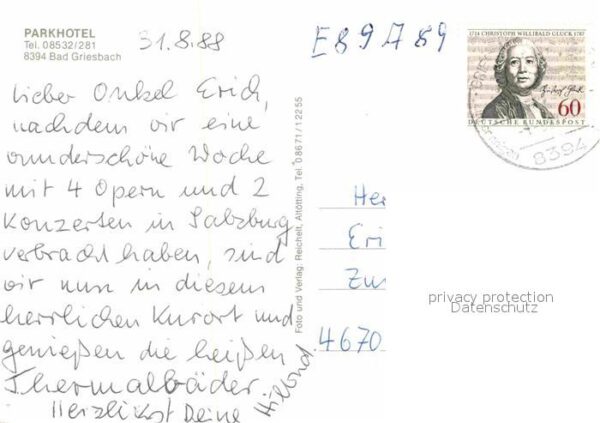 PARKHOTEL
Tel. 08532/281
8394 Bad Griesbach
31.8.88
Lieber Onkel Erich,
nachdem wir eine
wunderschöne Woche
mit 4 Opern und 2
Konzerten in Salzburg
verbracht haben, sind
wir nun in diesem
herrlichen Kurort und
genießen die heißen
Thermalbäder.
Herzlichst Deine
Foto und Verlag: Reichelt, Altötting, Tel. 08671/12255
E89A89
1714 CHRISTOPH WILLIBALD GLUCK 1787
60
DEUTSCHE BUNDESPOST
8394
Her
Eri
Zu
4670
privacy protection
Datenschutz